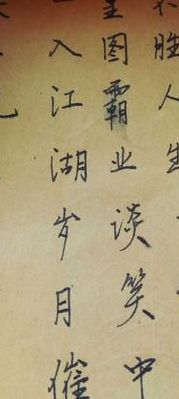 不胜人生
图霸业谈笑中
一入江湖岁月催